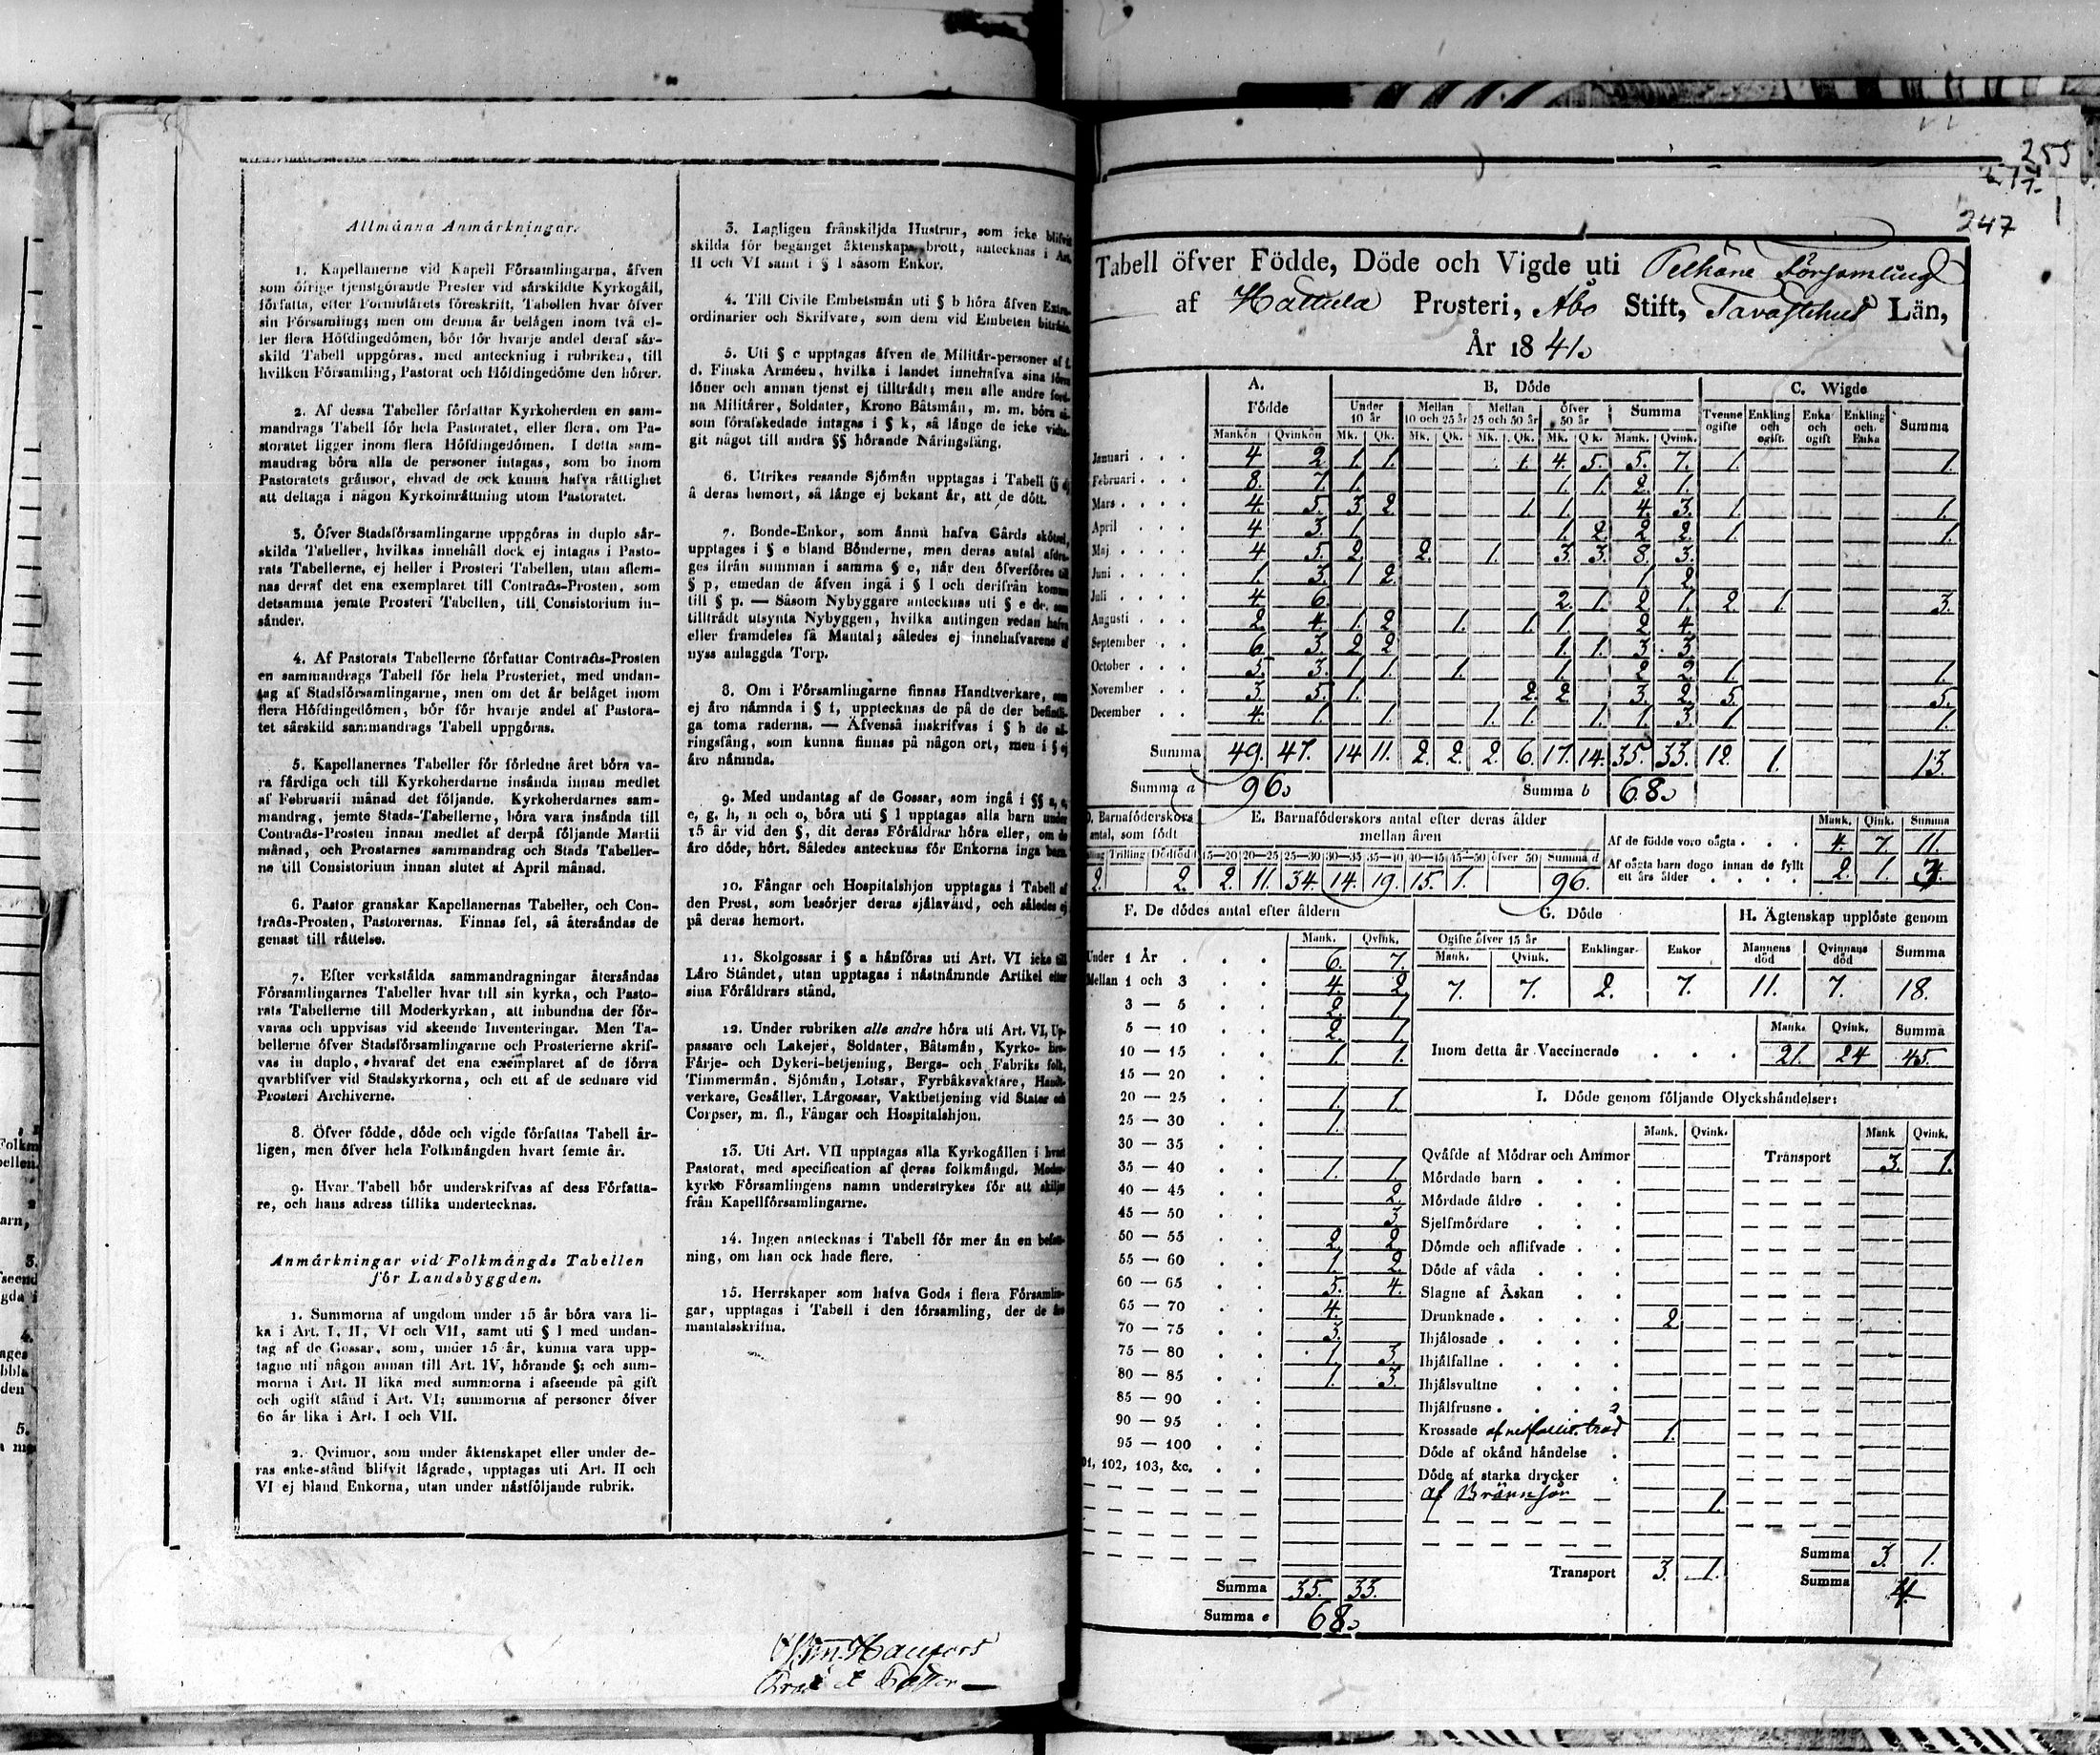 Allmänna Anmärkningar.
1. Kapellanerne vid Kapell Församlingarna, äfven
som öfrige tjenstgörande Prester vid särskildte Kyrkogåll,
författa, efter Formulärets föreskrift, Tabellen hvar öfver
sin Församling; men om denna är belägen inom två el-
ler flera Höfdingedömen, bör för hvarje andel deraf sär-
skild Tabell uppgöras, med anteckning i rubriken, till
hvilken Församling, Pastorat och Höfdingedöme den hörer.
2. Af dessa Tabeller författar Kyrkoherden en sam-
mandrags Tabell för hela Pastoratet, eller flera, om Pa-
storatet ligger inom flera Höfdingedömen. I detta sam-
mandrag böra alla de personer intagas, som bo inom
Pastoratets gränsor, ehvad de ock kunna hafva rättighet
att deltaga i någon Kyrkoinrättning utom Pastoratet.
3. Öfver Stadsförsamlingarne uppgöras in duplo sär-
skilda Tabeller, hvilkas innehåll dock ej intagas i Pasto-
rats Tabellerne, ej heller i Prosteri Tabellen, utan aflem-
nas deraf det ena exemplaret till Contracts-Prosten, som
detsamma jemte Prosteri Tabellen, till Consistorium in-
sänder.
4. Af Pastorats Tabellerne författar Contracts-Prosten
en sammandrags Tabell för hela Prosteriet, med undan-
tag af Stadsförsamlingarne, men om det är beläget inom
flera Höfdingedömen, bör för hvarje andel af Pastora-
tet särskild sammandrags Tabell uppgöras.
5. Kapellanernes Tabeller för förledne året böra va-
ra färdiga och till Kyrkoherdarne insända innan medlet
af Februarii månad det följande. Kyrkoherdarnes sam-
mandrag, jemte Stads-Tabellerne, böra vara insända till
Contracts-Prosten innan medlet af derpå följande Martii
månad, och Prostarnes sammandrag och Stads Tabeller-
ne till Consistorium innan slutet af April månad.
6. Pastor granskar Kapellanernas Tabeller, och Con-
tracts-Prosten, Pastorernas. Finnas fel, så återsändas de
genast till rättelse.
7. Efter verkställda sammandragningar återsändas
Församlingarnes Tabeller hvar till sin kyrka, och Pasto-
rats Tabellerne till Moderkyrkan, att inbundna der för-
varas och uppvisas vid skeende Inventeringar. Men Ta-
bellerne öfver Stadsförsamlingarne och Prosterierne skrif-
vas in duplo, hvaraf det ena exemplaret af de förra
qvarblifver vid Stadskyrkorna, och ett af de sednare vid
Prosteri Archiverne.
8. Öfver födde, döde och vigde författas Tabell år-
ligen, men öfver hela Folkmängden hvart femte år.
9. Hvar Tabell bör underskrifvas af dess Författa-
re, och hans adress tillika undertecknas.
Anmärkningar vid Folkmängds Tabellen
för Landsbyggden.
1. Summorna af ungdom under 15 år böra vara li-
ka i Art. I, II, VI och VII, samt uti § l med undan-
tag af de Gossar, som, under 15 år, kunna vara upp-
tagne uti någon annan till Art. IV, hörande §; och sum-
morna i Art. II lika med summorna i afseende på gift
och ogift stånd i Art. VI; summorna af personer öfver
60 år lika i Art. I och VII.
2. Qvinnor, som under äktenskapet eller under de-
ras enke-stånd blifvit lägrade, upptagas uti Art. II och
VI ej bland Enkorna, utan under nästföljande rubrik.
3. Lagligen frånskiljda Hustrur, som icke blifvit
skilda för begånget äktenskaps brott, antecknas i Art.
II och VI samt i § l såsom Enkor.
4. Till Civile Embetsmän uti § b höra äfven Extra-
ordinarier och Skrifvare, som dem vid Embeten biträda.
5. Uti § c upptagas äfven de Militär-personer af f.
d. Finska Arméen, hvilka i landet innehafva sina förra
löner och annan tjenst ej tillträdt; men alle andre ford-
na Militärer, Soldater, Krono Båtsmän, m. m. böra så-
som förafskedade intagas i § k, så länge de icke vidta-
git något till andra §§ hörande Näringsfång.
6. Utrikes resande Sjömän upptagas i Tabell (§ d)
å deras hemort, så länge ej bekant är, att de dött.
7. Bonde-Enkor, som ännu hafva Gårds skötsel,
upptages i § e bland Bönderne, men deras antal afdra-
ges ifrån summan i samma § e, när den öfverföres till
§ p, emedan de äfven ingå i § l och derifrån komma
till § p. — Såsom Nybyggare antecknas uti § e de, som
tillträdt utsynta Nybyggen, hvilka antingen redan hafva
eller framdeles få Mantal; således ej innehafvarene af
nyss anlaggda Torp.
8. Om i Församlingarne finnas Handtverkare, som
ej äro nämnda i § f, upptecknas de på de der befintli-
ga toma raderna. — Äfvenså inskrifvas i § h de nä-
ringsfång, som kunna finnas på någon ort, men i § ej
äro nämnda.
9. Med undantag af de Gossar, som ingå i §§ a, c,
e, g, h, n och o, böra uti § l upptagas alla barn under
15 år vid den §, dit deras Föräldrar höra eller, om de
äro döde, hört. Således antecknas för Enkorna inga barn.
10. Fångar och Hospitalshjon upptagas i Tabell af
den Prest, som besörjer deras själavård, och således ej
på deras hemort.
11. Skolgossar i § a hänföras uti Art. VI icke till
Läro Ståndet, utan upptagas i nästnämnde Artikel efter
sina Föräldrars stånd.
12. Under rubriken alle andre höra uti Art. VI, Up-
passare och Lakejer, Soldater, Båtsmän, Kyrko- Bro-
Färje- och Dykeri-betjening, Bergs- och Fabriks folk,
Timmermän, Sjömän, Lotsar, Fyrbåksvaktare, Handt-
verkare, Gesäller, Lärgossar, Vaktbetjening vid Stater och
Corpser, m. fl., Fångar och Hospitalshjon.
13. Uti Art. VII upptagas alla Kyrkogällen i hvart
Pastorat, med specification af deras folkmängd. Moder-
kyrko Församlingens namn understrykes för att skiljas
från Kapellförsamlingarne.
14. Ingen antecknas i Tabell för mer än en befatt-
ning, om han ock hade flere.
15. Herrskaper som hafva Gods i flera Församlin-
gar, upptagas i Tabell i den församling, der de äro
mantalsskrifna.
255
247
Tabell öfver Födde, Döde och Vigde uti Pelkäne Församling
af Hattula Prosteri, Åbo Stift, Tavastehus Län,
År 1841.
A. Födde B. Döde C. Wigde
Under 10 år Mellan 10 och 25 år Mellan 25 och 50 år Öfver 50 år Summa Tvenne ogifte Enkling och ogift. Enka och ogift Enkling och Enka Summa
Mankön Qvinkön Mk. Qk. Mk. Qk. Mk. Qk. Mk. Qk. Mank. Qvink.
Januari . . . 4 2. 1. 1. 1. 4. 5. 5. 7. 1. 1.
Februari . . . 8. 7. 1. 1. 1. 2. 1.
Mars . . . . 4. 5. 3 2. 1 1. 4. 3. 1. 1.
April . . . 4 3. 1. 1. 2. 2 2. 1. 1.
Maj . . . . 4 5. 2. 2. 1. 3. 3. 8. 3.
Juni . . . . 1. 3. 1 2. 1. 2.
Juli . . . . 4. 6. 2. 1. 2. 1. 2. 1. 3.
Augusti . . . 2. 4. 1. 2. 1. 1. 1. 2. 4.
September . . 6. 3. 2 2. 1. 1. 3. 3.
October . . . 5. 3. 1. 1. 1. 1. 2 2. 1. 1.
November . . 3. 5. 1. 2. 2. 3. 2. 5. 5.
December . . 4. 1. 1. 1. 1. 1. 1. 3. 1. 1.
Summa 49. 47. 14 11. 2. 2. 2. 6. 17. 14. 35. 33. 12. 1. 13.
Summa a 96. Summa b 68.
D. Barnaföderskors antal, som födt
Trilling Dödfödt
2. 2.
E. Barnaföderskors antal efter deras ålder
mellan åren
15—20 20—25 25—30 30—35 35—40 40—45 45—50 öfver 50 Summa d
2. 11. 34. 14. 19. 15. 1. 96.
Mank. Qink. Summa
Af de födde voro oägta . . . 4. 7. 11.
Af oägta barn dogo innan de fyllt
ett års ålder . . . . 2. 1. 3.
F. De dödes antal efter åldern
Mank. Qvink.
Under 1 År . . . 6. 7.
Mellan 1 och 3 . . 4. 2
3 — 5 . . 2. 1
5 — 10 . . 2. 1.
10 — 15 . . 1. 1.
15 — 20 . .
20 — 25 . . 1. 1.
25 — 30 . . 1.
30 — 35 . .
35 — 40 . . 1. 1.
40 — 45 . . 2.
45 — 50 . . 3.
50 — 55 . . 2. 2.
55 — 60 . . 1. 2.
60 — 65 . . 5. 4.
65 — 70 . . 4.
70 — 75 . . 3.
75 — 80 . . 1 3.
80 — 85 . . 1. 3.
85 — 90 . .
90 — 95 . .
95 — 100 . .
101, 102, 103, &c. . .
Summa 35. 33.
Summa e 68.
G. Döde
Ogifte öfver 15 år Enklingar Enkor
Mank. Qvink.
7. 7. 2. 7.
H. Ägtenskap upplöste genom
Mannens död Qvinnans död Summa
11. 7. 18.
Mank. Qvink. Summa
Inom detta år Vaccinerade . . . 21. 24 45.
I. Döde genom följande Olyckshändelser:
Mank. Qvink. Mank Qvink.
Qväfde af Mödrar och Ammor Transport 3. 1.
Mördade barn . . .
Mördade äldre . . .
Sjelfmördare . . .
Dömde och aflifvade . .
Döde af våda . . .
Slagne af Åskan . .
Drunknade . . . . 2
Ihjälosade . . . .
Ihjälfallne . . . .
Ihjälsvultne . . .
Ihjälfrusne . . . .
Krossade af nedfallit träd 1.
Döde af okänd händelse .
Döde af starka drycker .
af Brännsår 1.
Transport 3. 1. Summa 3. 1.
Summa 4.